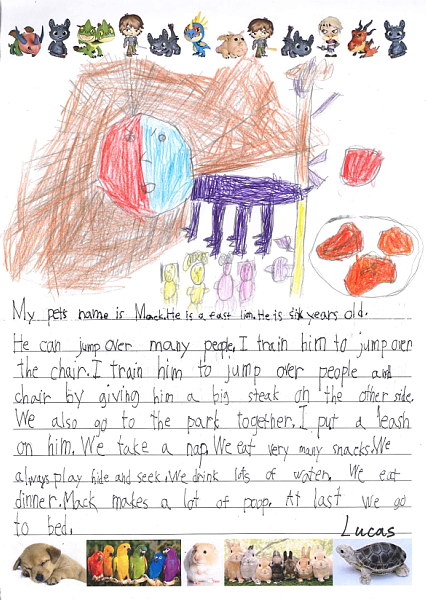 My pets name is Mack. He is a fast lion. He is six years old.
He can jump over many people. I train him to jump over
the chair. I train him to jump over people and
chair by giving him a big steak on the other side.
We also go to the park together. I put a leash
on him. We take a nap. We eat very many snacks. We
always play hide and seek. We drink lots of water. We eat
dinner. Mack makes a lot of poop. At last we go
to bed.
Lucas